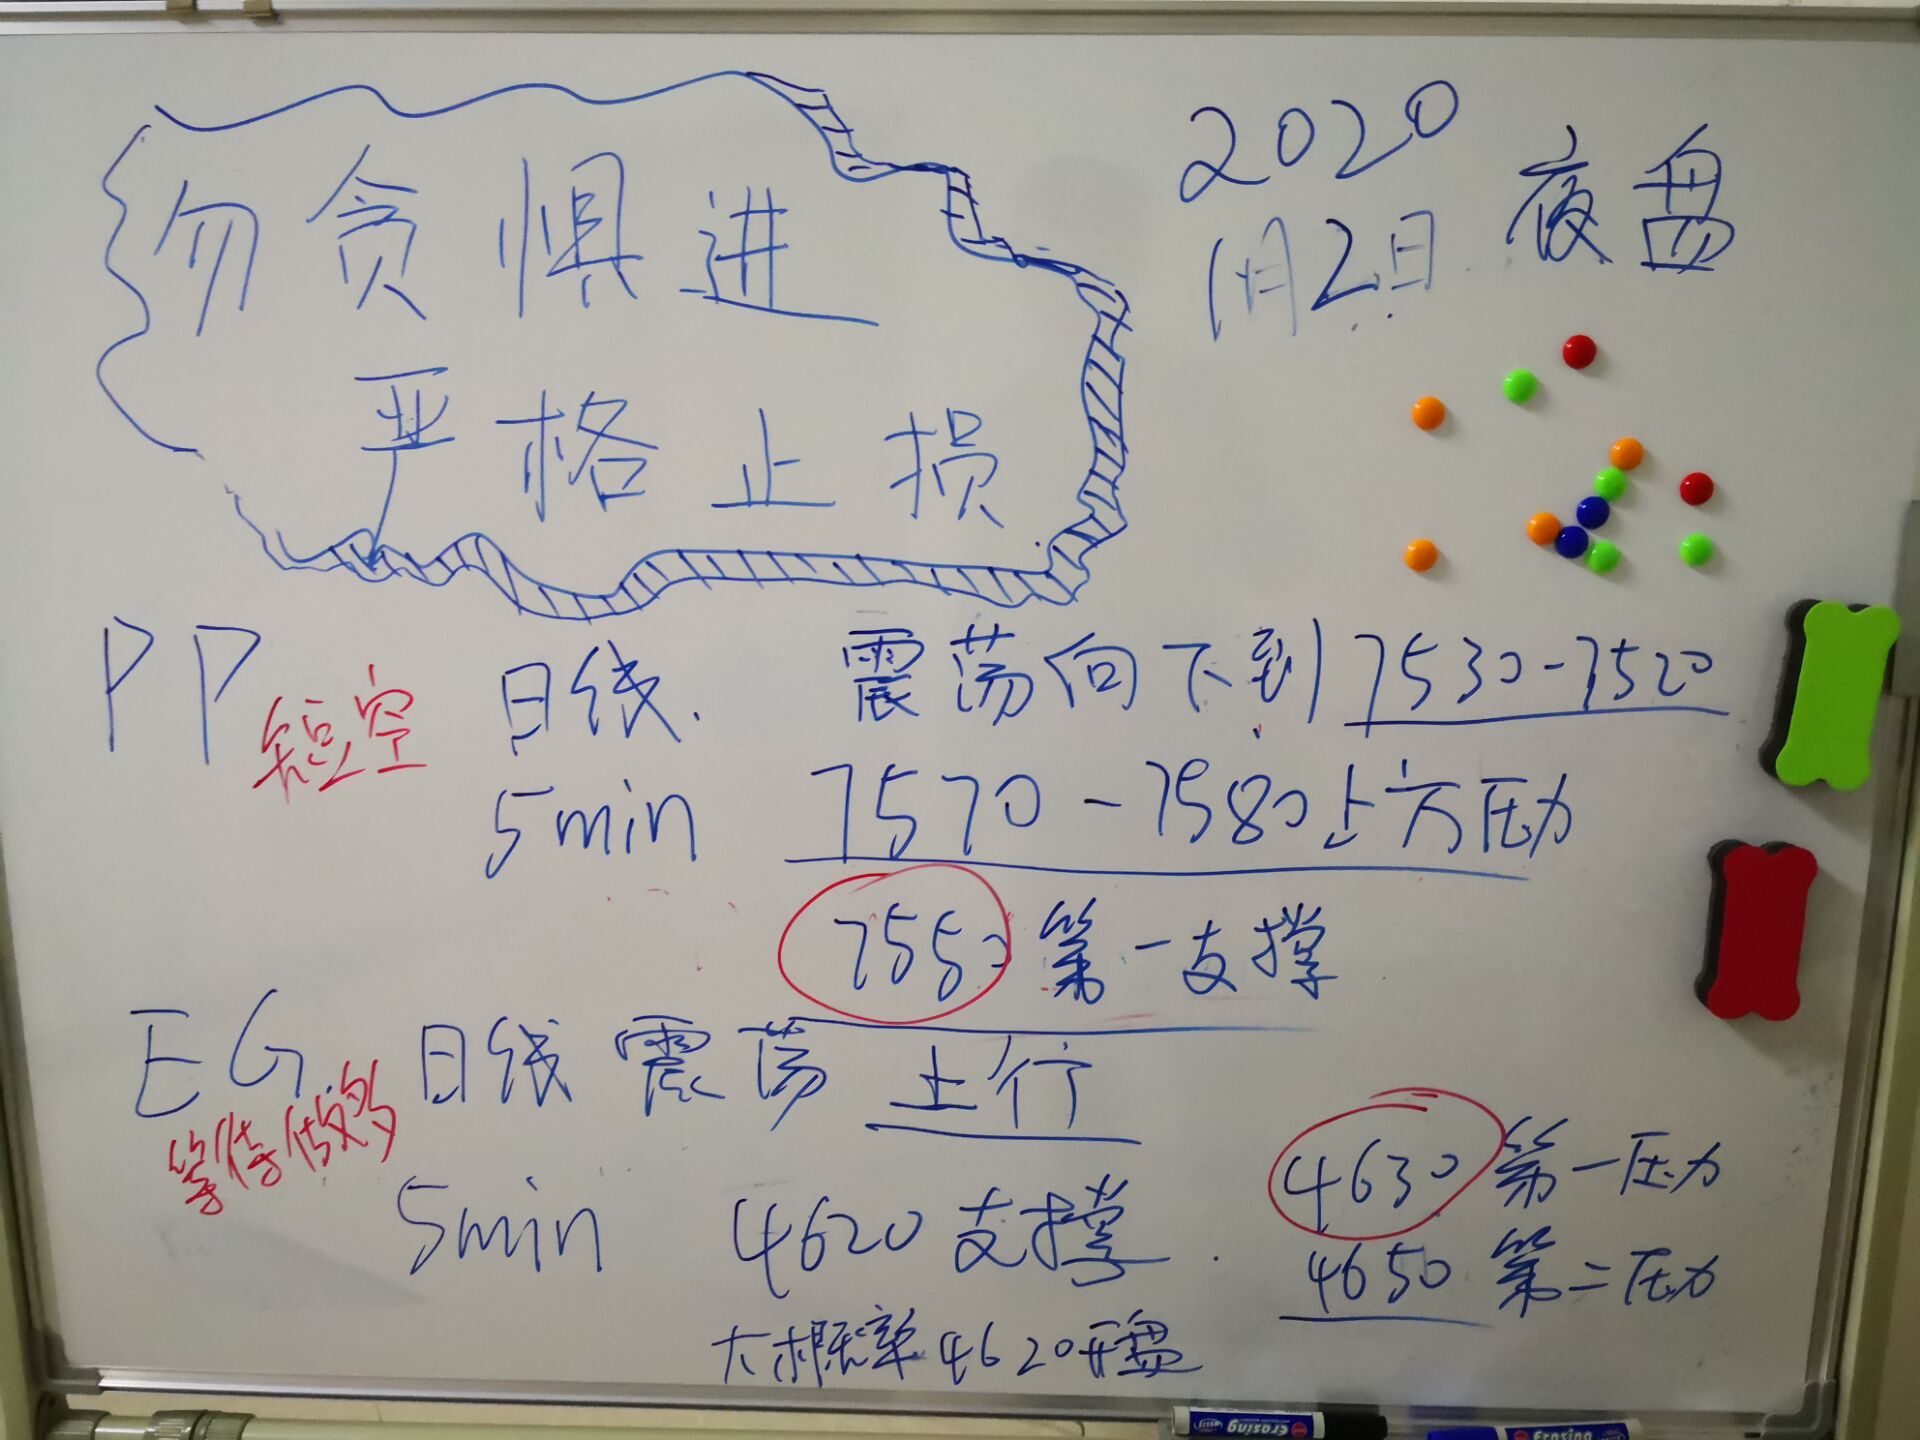 勿贪惧进
严格止损
2020
1月2日 夜盘
PP 短空 日线 震荡向下到7530-7520
5min 7570-7580上方压力
7550 第一支撑
EG 等待做多 日线 震荡 上行
5min 4620 支撑
4630 第一压力
4650 第二压力
大概率4620开盘
Erasing
Erasing